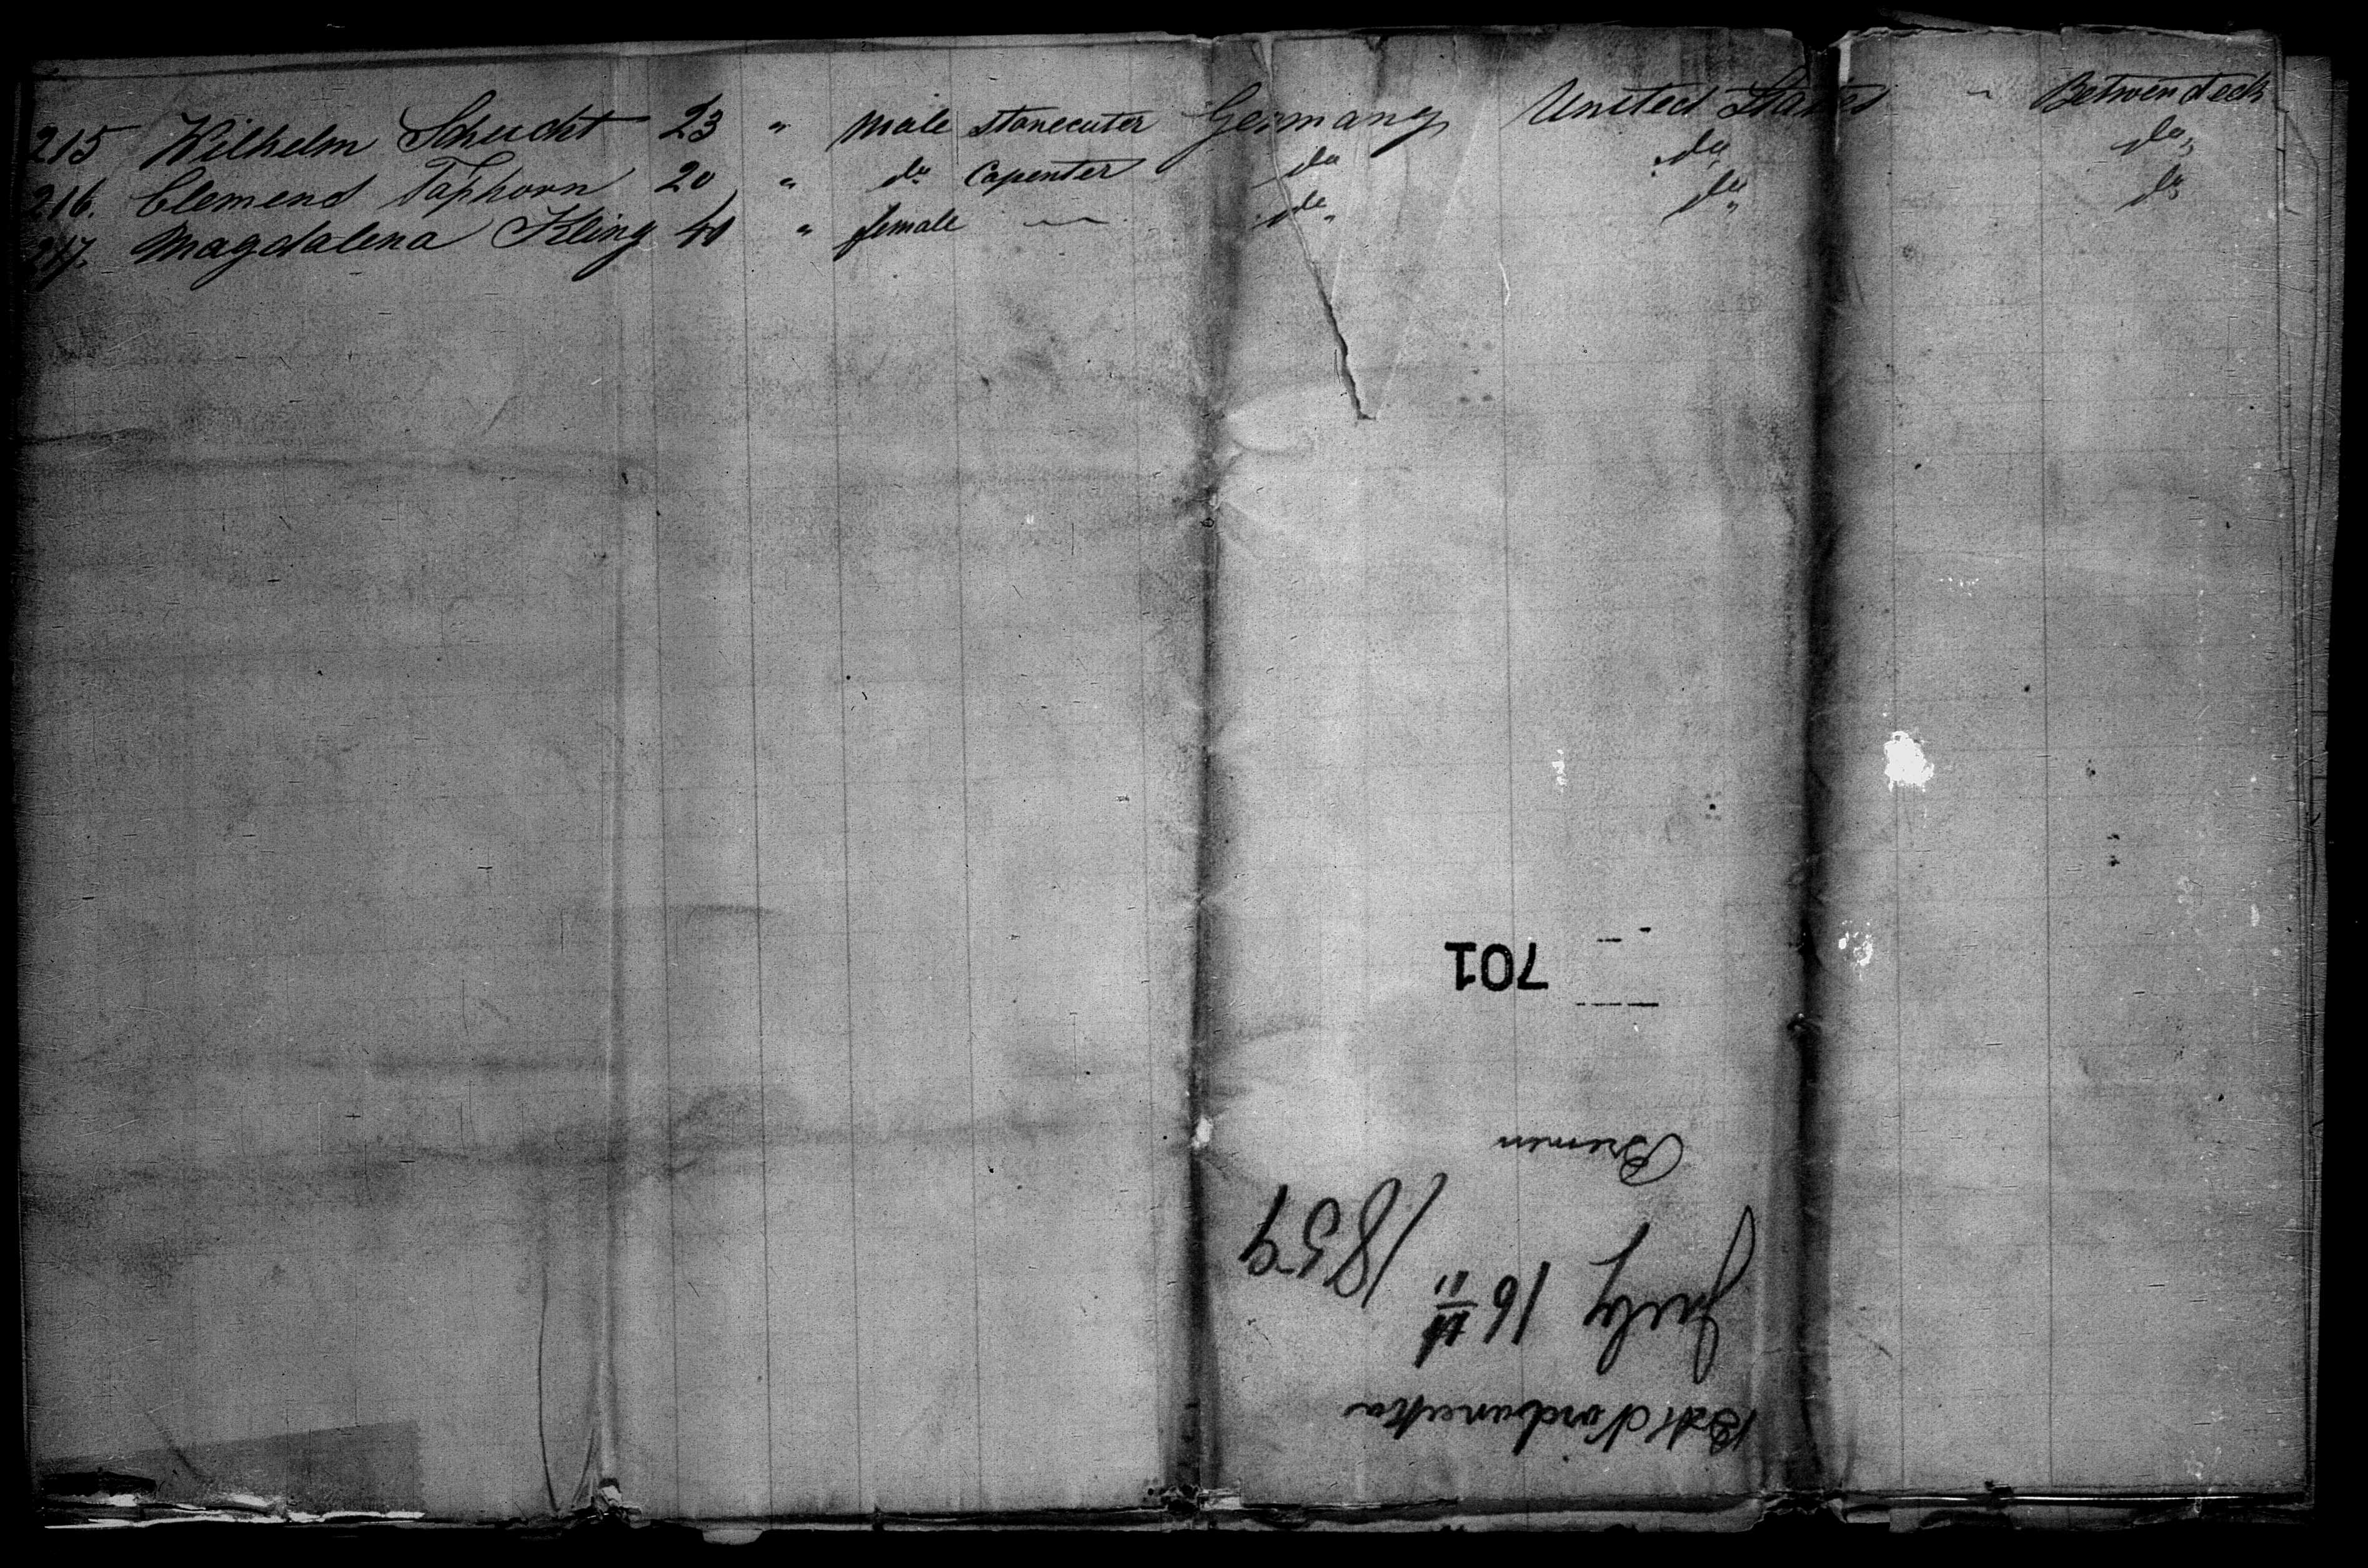 215 Wilhelm Schucht 23 " Male Stonecuter Germany United States - Betwendeck
216. Clemens Taphorn 20 " do. Capenter do do, do,
217. Magdalena Kling 40 " female — do, do, do
701
Bremen
1859
July 16